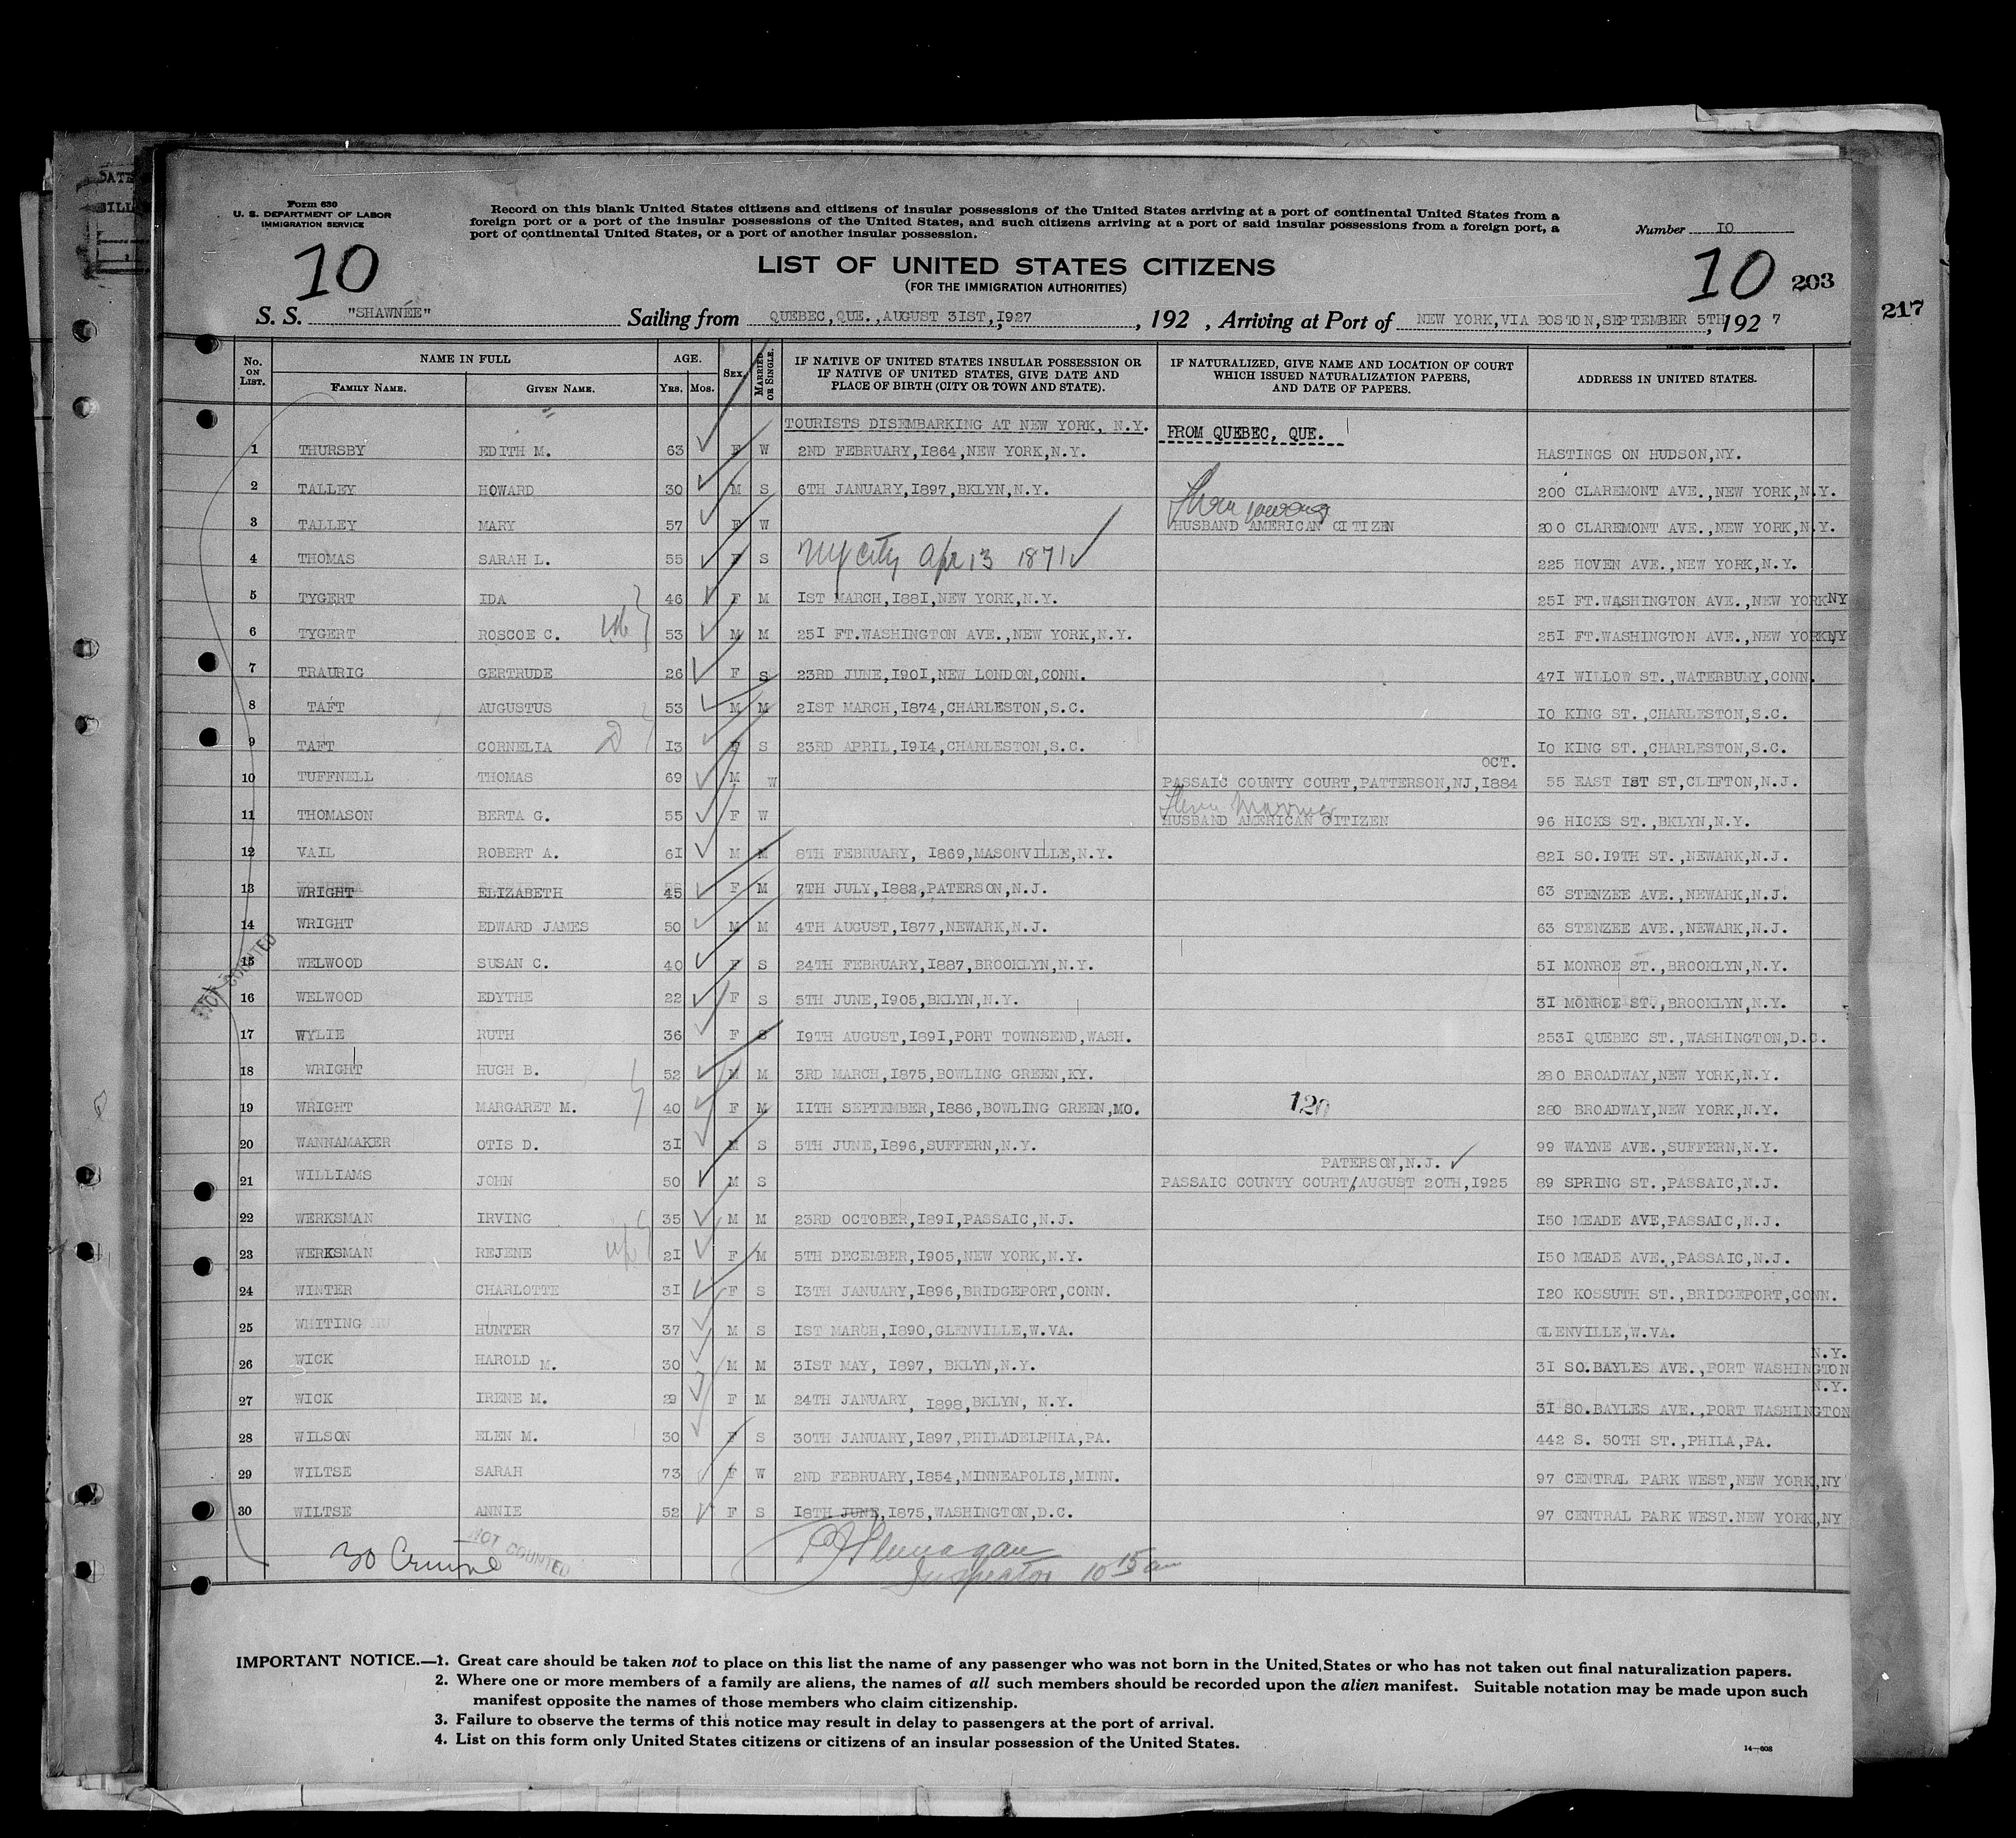 DATE
BILL
Form 630
U. S. DEPARTMENT OF LABOR
IMMIGRATION SERVICE
Record on this blank United States citizens and citizens of insular possessions of the United States arriving at a port of continental United States from a
foreign port or a port of the insular possessions of the United States, and such citizens arriving at a port of said insular possessions from a foreign port, a
port of continental United States, or a port of another insular possession.
Number 10
10
LIST OF UNITED STATES CITIZENS
(FOR THE IMMIGRATION AUTHORITIES)
10 203
217
S. S. "SHAWNEE" Sailing from QUEBEC,QUE.,AUGUST 31ST,1927, 192 , Arriving at Port of NEW YORK,VIA BOSTON,SEPTEMBER 5TH, 192 7
No. ON LIST. NAME IN FULL FAMILY NAME. GIVEN NAME. AGE. YRS. MOS. SEX. MARRIED OR SINGLE. IF NATIVE OF UNITED STATES INSULAR POSSESSION OR IF NATIVE OF UNITED STATES, GIVE DATE AND PLACE OF BIRTH (CITY OR TOWN AND STATE). IF NATURALIZED, GIVE NAME AND LOCATION OF COURT WHICH ISSUED NATURALIZATION PAPERS, AND DATE OF PAPERS. ADDRESS IN UNITED STATES.
TOURISTS DISEMBARKING AT NEW YORK, N.Y. FROM QUEBEC, QUE.
1 THURSBY EDITH M. 63 F W 2ND FEBRUARY,1864,NEW YORK,N.Y. HASTINGS ON HUDSON,NY.
2 TALLEY HOWARD 30 M S 6TH JANUARY,1897,BKLYN,N.Y. 200 CLAREMONT AVE.,NEW YORK,N.Y.
3 TALLEY MARY 57 F W HUSBAND AMERICAN CITIZEN 200 CLAREMONT AVE.,NEW YORK,N.Y.
4 THOMAS SARAH L. 55 F S NY City Apr 13 1871 225 HOVEN AVE.,NEW YORK,N.Y.
5 TYGERT IDA 46 F M 1ST MARCH,1881,NEW YORK,N.Y. 251 FT.WASHINGTON AVE.,NEW YORKNY
6 TYGERT ROSCOE C. 53 M M 251 FT.WASHINGTON AVE.,NEW YORK,N.Y. 251 FT.WASHINGTON AVE.,NEW YORK,NY
7 TRAURIG GERTRUDE 26 F S 23RD JUNE,1901,NEW LONDON,CONN. 471 WILLOW ST.,WATERBURY,CONN.
8 TAFT AUGUSTUS 53 M M 21ST MARCH,1874,CHARLESTON,S.C. 10 KING ST.,CHARLESTON,S.C.
9 TAFT CORNELIA 2 13 F S 23RD APRIL,1914,CHARLESTON,S.C. 10 KING ST.,CHARLESTON,S.C.
OCT.
10 TUFFNELL THOMAS 69 M W PASSAIC COUNTY COURT,PATTERSON,NJ,1884 55 EAST 1ST ST,CLIFTON,N.J.
11 THOMASON BERTA G. 55 F W HUSBAND AMERICAN CITIZEN 96 HICKS ST.,BKLYN,N.Y.
12 VAIL ROBERT A. 61 M M 8TH FEBRUARY, 1869,MASONVILLE,N.Y. 821 SO.19TH ST.,NEWARK,N.J.
13 WRIGHT ELIZABETH 45 F M 7TH JULY,1882,PATERSON,N.J. 63 STENZEE AVE.,NEWARK,N.J.
14 WRIGHT EDWARD JAMES 50 M M 4TH AUGUST,1877,NEWARK,N.J. 63 STENZEE AVE.,NEWARK,N.J.
15 WELWOOD SUSAN C. 40 F S 24TH FEBRUARY,1887,BROOKLYN,N.Y. 51 MONROE ST.,BROOKLYN,N.Y.
NOT COUNTED
16 WELWOOD EDYTHE 22 F S 5TH JUNE,1905,BKLYN,N.Y. 31 MONROE ST.,BROOKLYN,N.Y.
17 WYLIE RUTH 36 F S 19TH AUGUST,1891,PORT TOWNSEND,WASH. 2531 QUEBEC ST.,WASHINGTON,D.C.
18 WRIGHT HUGH B. 52 M M 3RD MARCH,1875,BOWLING GREEN,KY. 280 BROADWAY,NEW YORK,N.Y.
19 WRIGHT MARGARET M. 40 F M 11TH SEPTEMBER,1886,BOWLING GREEN,MO. 120 280 BROADWAY,NEW YORK,N.Y.
20 WANNAMAKER OTIS D. 31 M S 5TH JUNE,1896,SUFFERN,N.Y. 99 WAYNE AVE.,SUFFERN,N.Y.
PATERSON,N.J.
21 WILLIAMS JOHN 50 M S PASSAIC COUNTY COURT/AUGUST 20TH,1925 89 SPRING ST.,PASSAIC,N.J.
22 WERKSMAN IRVING 35 M M 23RD OCTOBER,1891,PASSAIC,N.J. 150 MEADE AVE,PASSAIC,N.J.
23 WERKSMAN REJENE 21 F M 5TH DECEMBER,1905,NEW YORK,N.Y. 150 MEADE AVE.,PASSAIC,N.J.
24 WINTER CHARLOTTE 31 F S 13TH JANUARY,1896,BRIDGEPORT,CONN. 120 KOSSUTH ST.,BRIDGEPORT,CONN.
25 WHITING HUNTER 37 M S 1ST MARCH,1890,GLENVILLE,W.VA. GLENVILLE,W.VA.
N.Y.
26 WICK HAROLD M. 30 M M 31ST MAY, 1897, BKLYN,N.Y. 31 SO.BAYLES AVE.,PORT WASHINGTON
N.Y.
27 WICK IRENE M. 29 F M 24TH JANUARY, 1898,BKLYN, N.Y. 31 SO.BAYLES AVE.,PORT WASHINGTON
28 WILSON ELEN M. 30 F S 30TH JANUARY,1897,PHILADELPHIA,PA. 442 S. 50TH ST.,PHILA,PA.
29 WILTSE SARAH 73 F W 2ND FEBRUARY,1854,MINNEAPOLIS,MINN. 97 CENTRAL PARK WEST,NEW YORK,NY
30 WILTSE ANNIE 52 F S 18TH JUNE,1875,WASHINGTON,D.C. 97 CENTRAL PARK WEST.NEW YORK,NY
30 NOT COUNTED
Inspector 10 15 am
IMPORTANT NOTICE.—1. Great care should be taken not to place on this list the name of any passenger who was not born in the United States or who has not taken out final naturalization papers.
2. Where one or more members of a family are aliens, the names of all such members should be recorded upon the alien manifest. Suitable notation may be made upon such
manifest opposite the names of those members who claim citizenship.
3. Failure to observe the terms of this notice may result in delay to passengers at the port of arrival.
4. List on this form only United States citizens or citizens of an insular possession of the United States.
14—608